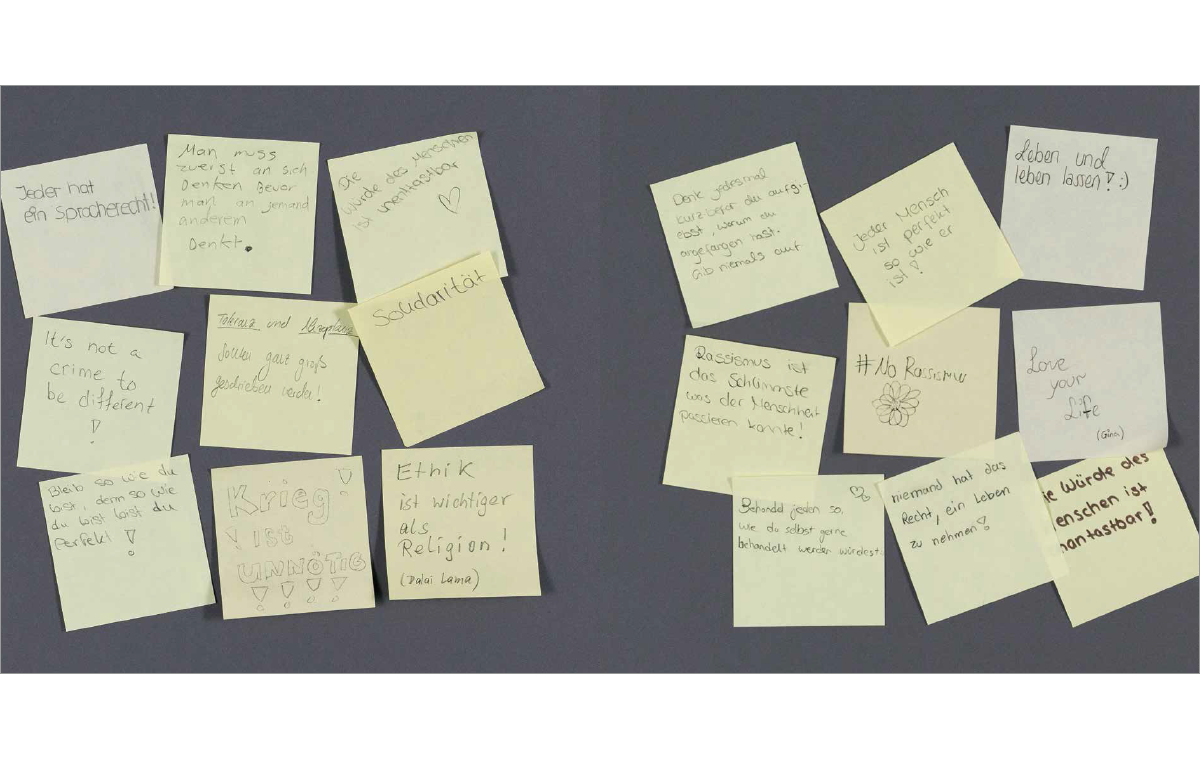 Jeder hat
ein Spracherecht!
Man muss
zuerst an sich
Denken Bevor
man an jemand
anderem
Denkt.
Die
Würde des Menschen
ist unantastbar
It's not a
crime to
be different
!
Toleranz und Akzeptanz
Sollten ganz groß
geschrieben werden!
Solidarität
Bleib so wie du
bist, denn so wie
du bist bist du
Perfekt!
Krieg!
! IST
UNNÖTIG
! ! ! !
Ethik
ist wichtiger
als
Religion!
(Dalai Lama)
Denk jedesmal
kurz bevor du aufgi-
ebst, warum du
angefangen hast.
Gib niemals auf
Jeder Mensch
ist perfekt
so wie er
ist!
Leben und
leben lassen! :)
Rassismus ist
das Schlimmste
was der Menschheit
passieren konnte!
#No Rassismus
Love
your
Life
(Gina)
Behandel jeden so,
wie du selbst gerne
behandelt werden würdest.
niemand hat das
Recht, ein Leben
zu nehmen!
ie Würde des
enschen ist
nantastbar!